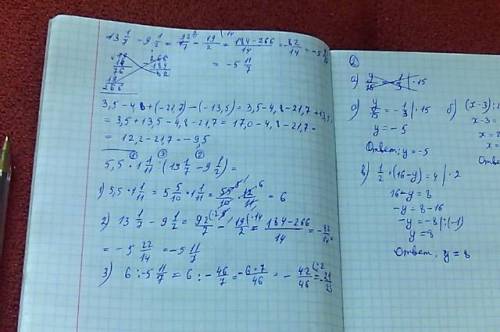 13 1/7 - 9 1/2 = 92/7 - 19/2 = 184-266/14 = 82/14 = -5
= -5 11/7
3,5 - 4,8 + (-21,7) - (-13,5) = 3,5 - 4,8 - 21,7 + 13,5
= 3,5 + 13,5 - 4,8 - 21,7 = 17,0 - 4,8 - 21,7 =
= 12,2 - 21,7 = -9,5
5,5 · 1 1/11 : (13 1/7 - 9 1/2) =
1) 5,5 · 1 1/11 = 5 5/10 · 1 1/11 = 55/10 · 12/11 = 6
2) 13 1/7 - 9 1/2 = 92/7 - 19/2 = 184-266/14 = -82/14
= -5 22/14 = -5 11/7
3) 6 : -5 11/7 = 6 : -46/7 = -6·7/46 = -42/46 = -21/23
а) y/15 = -1/3 | · 15
y/15 = -1/3 | · 15
y = -5
Ответ: y = -5
б) (x-3)
x-3 =
x =
в) 1/2 · (16-y) = 4 | · 2
16-y = 8
-y = 8-16
-y = -8 | : (-1)
y = 8
Ответ: y = 8